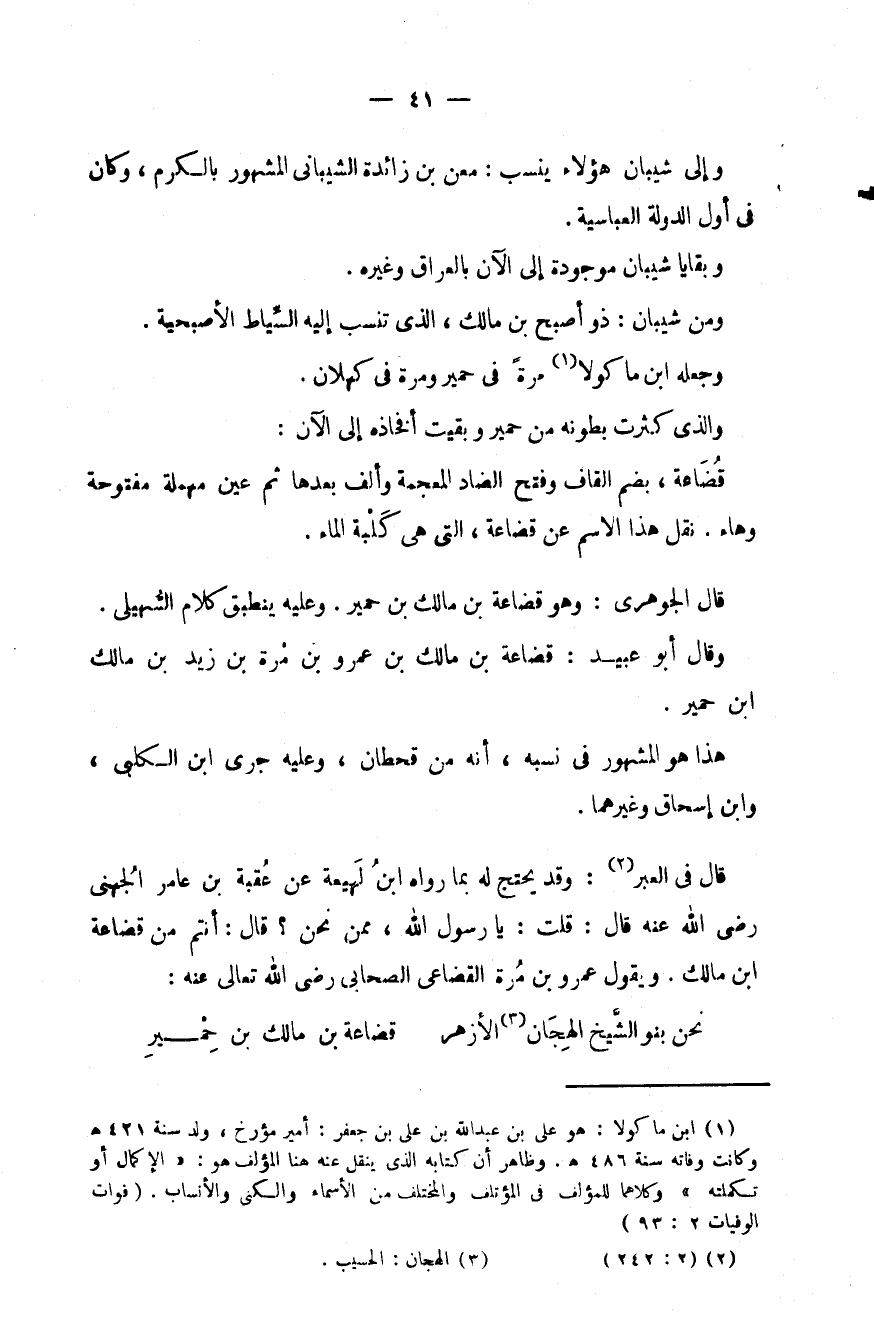 — ٤١ —
وإلى شيبان هؤلاء ينسب : معن بن زائدة الشيبانى المشهور بالكرم ، وكان
فى أول الدولة العباسية .
وبقايا شيبان موجودة إلى الآن بالعراق وغيره .
ومن شيبان : ذو أصبح بن مالك ، الذى تنسب إليه السِّياط الأصبحية .
وجعله ابن ماكولا(١) مرةً فى حمير ومرة فى كهلان .
والذى كثرت بطونه من حمير وبقيت أفخاذه إلى الآن :
قُضَاعة ، بضم القاف وفتح الضاد المعجمة وألف بعدها ثم عين مهملة مفتوحة
وهاء . نقل هذا الاسم عن قضاعة ، التى هى كَلْبة الماء .
قال الجوهرى : وهو قضاعة بن مالك بن حمير . وعليه ينطبق كلام السُّهيلى .
وقال أبو عبيد : قضاعة بن مالك بن عمرو بن مُرة بن زيد بن مالك
ابن حمير .
هذا هو المشهور فى نسبه ، أنه من قحطان ، وعليه جرى ابن الكلبى ،
وابن إسحاق وغيرهما .
قال فى العبر(٢) : وقد يحتج له بما رواه ابنُ لَهيعة عن عُقبة بن عامر الجُهنى
رضى الله عنه قال : قلت : يا رسول الله ، ممن نحن ؟ قال : أنتم من قضاعة
ابن مالك . ويقول عمرو بن مُرة القضاعى الصحابى رضى الله تعالى عنه :
نحن بنو الشَّيخ الهِجَان(٣) الأزهر قضاعة بن مالك بن حِمْيرِ
(١) ابن ماكولا : هو على بن عبدالله بن على بن جعفر : أمير مؤرخ ، ولد سنة ٤٢١ ه
وكانت وفاته سنة ٤٨٦ ه . وظاهر أن كتابه الذى ينقل عنه هنا المؤلف هو : « الإكمال أو
تكملته » وكلاهما للمؤلف فى المؤتلف والمختلف من الأسماء والكنى والأنساب . ( فوات
الوفيات ٢ : ٩٣ )
(٢) (٢ : ٢٤٢ ) (٣) الهجان : الحسيب .